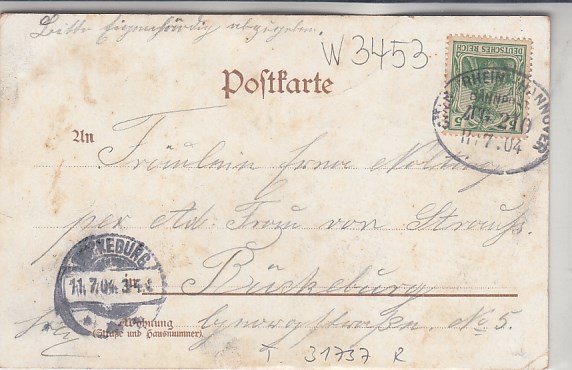 Bitte Eigenhändig abzugeben.
W 3453
Postkarte
DEUTSCHES REICH
5
RHEINE HANNOVER
BAHNPOST
11.7.04
An
Fräulein Erna
per Ad. Frau von Strauss.
BÜCKEBURG
11.7.04.3-4
in Bückeburg
Wohnung
(Straße und Hausnummer)
No 5.
T 31737 R